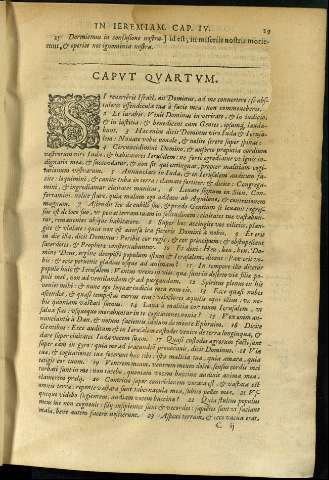 IN IEREMIAM. CAP. IV. 29
25 Dormiemus in confusione nostra.] id est, in miseriis nostris morie-
mur, & operiet nos ignominia nostra.
CAPVT QVARTVM.
SI reuerteris Israel, ait Dominus, ad me conuertere: si abs-
tuleris offendicula tua à facie mea, non commoueberis.
2 Et iurabis: Viuit Dominus in veritate, & in iudicio,
& in iustitia, & benedicent eum Gentes, ipsumq; lauda-
bunt. 3 Haec enim dicit Dominus viro Iuda & Ierusa-
lem: Nouate vobis nouale, & nolite serere super spinas:
4 Circuncidimini Domino, & auferte praeputia cordium
vestrorum viri Iuda, & habitatores Ierusalem: ne forte egrediatur vt ignis in-
dignatio mea, & succendatur, & non sit qui extinguat, propter malitiam cogi-
tationum vestrarum. 5 Annunciate in Iuda, & in Ierusalem auditum fa-
cite: loquimini, & canite tuba in terra: clamate fortiter, & dicite: Congrega-
mini, & ingrediamur ciuitates munitas, 6 Leuate signum in Sion. Con-
fortamini, nolite stare, quia malum ego adduco ab Aquilone, & contritionem
magnam. 7 Ascendit leo de cubili suo, & praedo Gentium se leuauit: egres-
sus est de loco suo, vt ponat terram tuam in solitudinem: ciuitates tuae vastabun-
tur, remanentes absque habitatore. 8 Super hoc accingite vos ciliciis, plan-
gite & vlulate: quia non est auersa ira furoris Domini à nobis. 9 Et erit
in die illa, dicit Dominus: Peribit cor regis, & cor principum: & obstupescent
sacerdotes, & Prophetae consternabuntur. 10 Et dixi: Heu, heu, heu, Do-
mine Deus, ergone decepisti populum istum & Ierusalem, dicens: Pax erit vo-
bis: & ecce peruenit gladius vsque ad animam? 11 In tempore illo dicetur
populo huic & Ierusalem: Ventus vrens in viis, quae sunt in deserto viae filiae po-
puli mei, non ad ventilandum & ad purgandum. 12 Spiritus plenus ex his
veniet mihi: & nunc ego loquar iudicia mea cum eis. 13 Ecce quasi nubes
ascendet, & quasi tempestas currus eius: velociores aquilis equi illius: vae no-
bis quoniam vastati sumus. 14 Laua à malitia cor tuum Ierusalem, vt
salua fias: vsquequo morabuntur in te cogitationes noxiae? 15 Vox enim an-
nunciantis à Dan, & notum facientis idolum de monte Ephraim. 16 Dicite
Gentibus: Ecce auditum est in Ierusalem custodes venire de terra longinqua, &
dare super ciuitates Iuda vocem suam. 17 Quasi custodes agrorum facti sunt
super eam in gyro: quia me ad iracundiam prouocauit, dicit Dominus. 18 Viae
tuae, & cogitationes tuae fecerunt haec tibi: ista malitia tua, quia amara, quia
tetigit cor tuum. 19 Ventrem meum, ventrem meum doleo, sensus cordis mei
turbati sunt in me: non tacebo, quoniam vocem buccinae audiuit anima mea,
clamorem praelij. 20 Contritio super contritionem vocata est, & vastata est
omnis terra: repente vastata sunt tabernacula mea, subito pelles meae. 21 Vs-
quequo videbo fugientem, audiam vocem buccinae? 22 Quia stultus populus
meus me non cognouit: filij insipientes sunt & vecordes: sapientes sunt vt faciant
mala, bene autem facere nescierunt. 23 Aspexi terram, & ecce vacua erat,
C iij